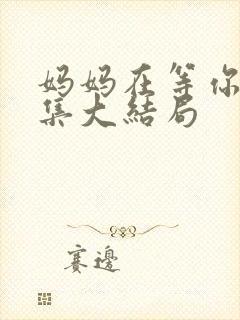 妈妈在等你
集大结局
赛邊